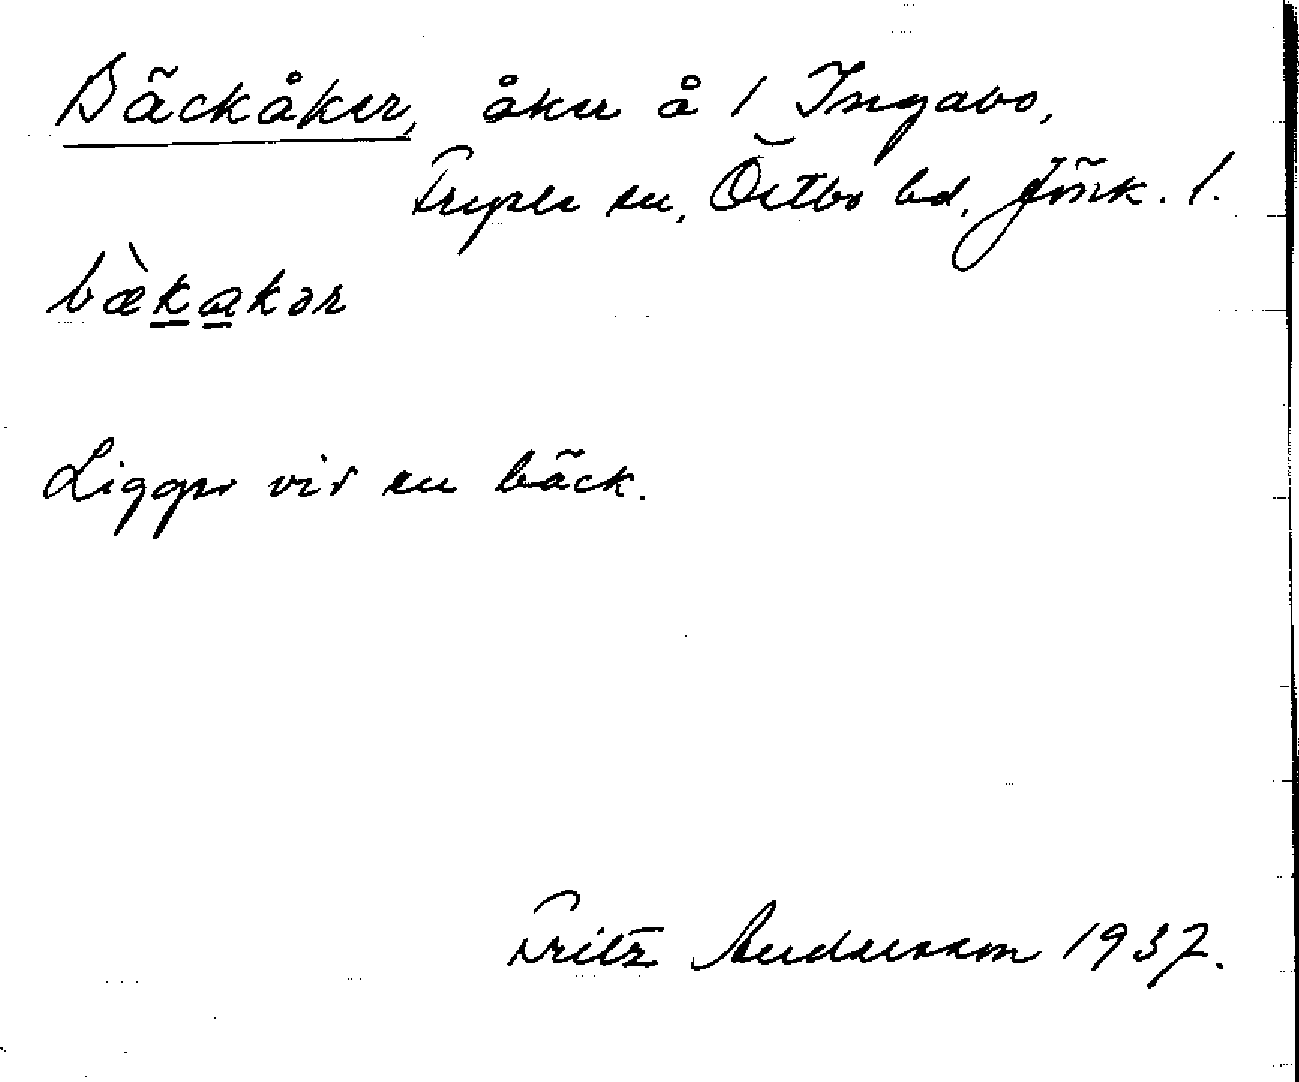 Bäckåker, åker å 1 Ingabo,
Fryele sn, Östbo hd, Jönk. l.
bæ̀kakər
Ligger vid en bäck.
Fritz Andersson 1937.